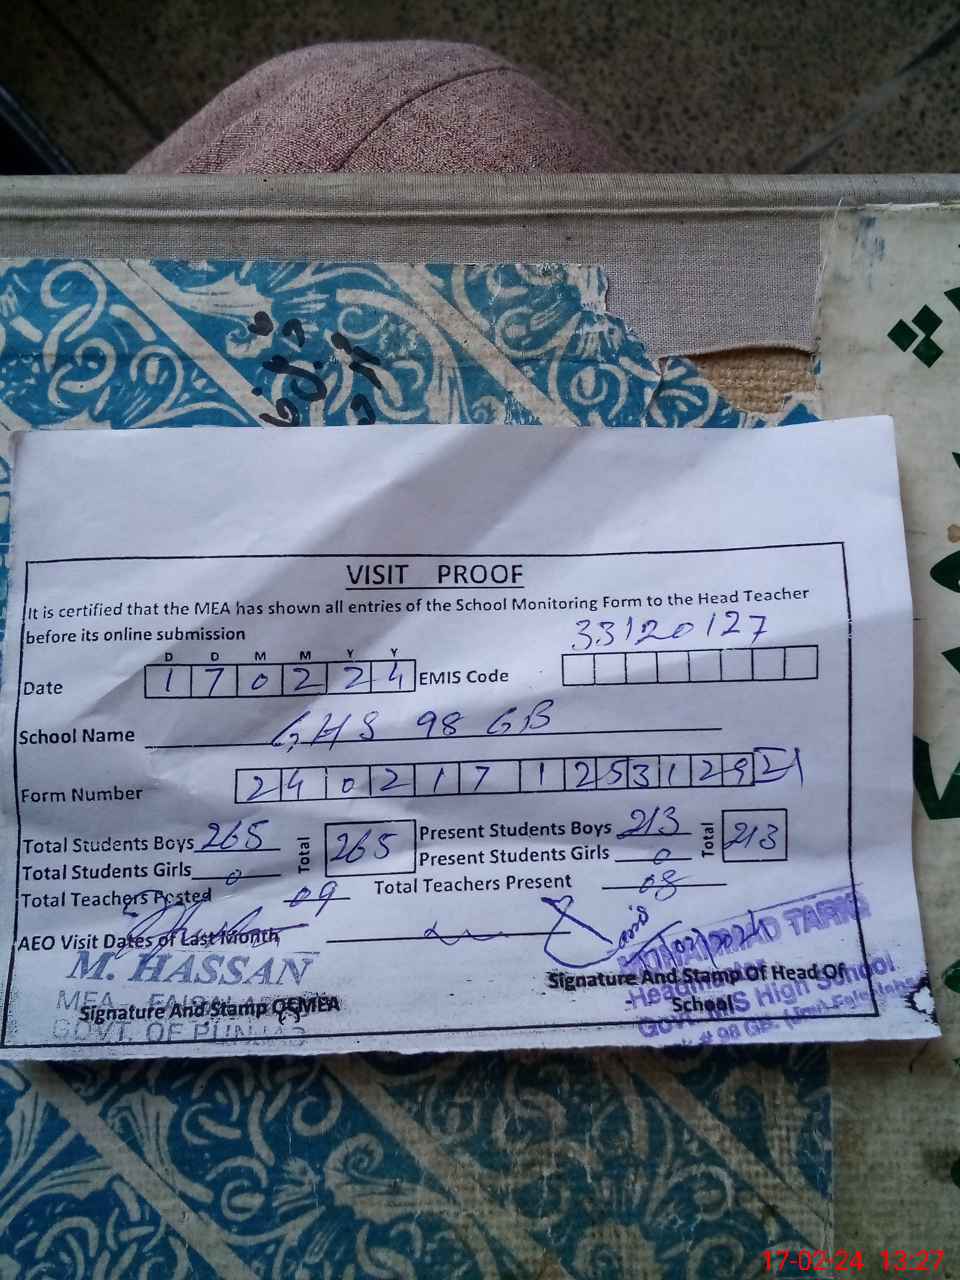 VISIT PROOF
It is certified that the MEA has shown all entries of the School Monitoring Form to the Head Teacher
before its online submission
33120127
D D M M Y Y
Date 1 7 0 2 2 4 EMIS Code
School Name GHS 98 GB
Form Number 2 4 0 2 1 7 1 2 5 3 1 2 9
Total Students Boys 265 Total 265 Present Students Boys 213 Total 213
Total Students Girls 0 Present Students Girls 0
Total Teachers Posted 09 Total Teachers Present 08
AEO Visit Dates of Last Month
MUHAMMAD TARIQ
M. HASSAN
Signature And Stamp Of Head Of
School
Headmaster
MEA - FAISALABAD
Signature And Stamp Of MEA
Govt. M/S High School
GOVT. OF PUNJAB
# 98 GB.
17-02-24 13:27